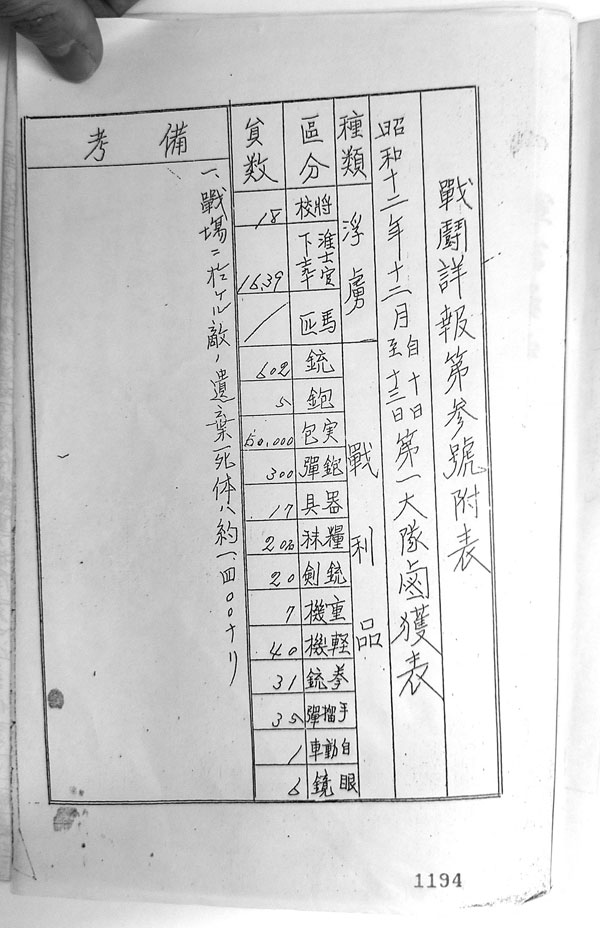 戰鬪詳報第參號附表
昭和十二年十二月自十日至十三日第一大隊鹵獲表
種類 浮虜 戰利品
區分 將校 准士官下士卒 馬匹 銃 鉋 実包 鉋彈 器具 糧秣 銃剣 重機 軽機 拳銃 手榴彈 自動車 眼鏡
員数 18 1639 / 502 5 50,000 300 17 206 20 7 40 31 35 1 6
備考
一、戰場ニ於ケル敵ノ遺棄死体ハ約一、四〇〇ナリ
1194